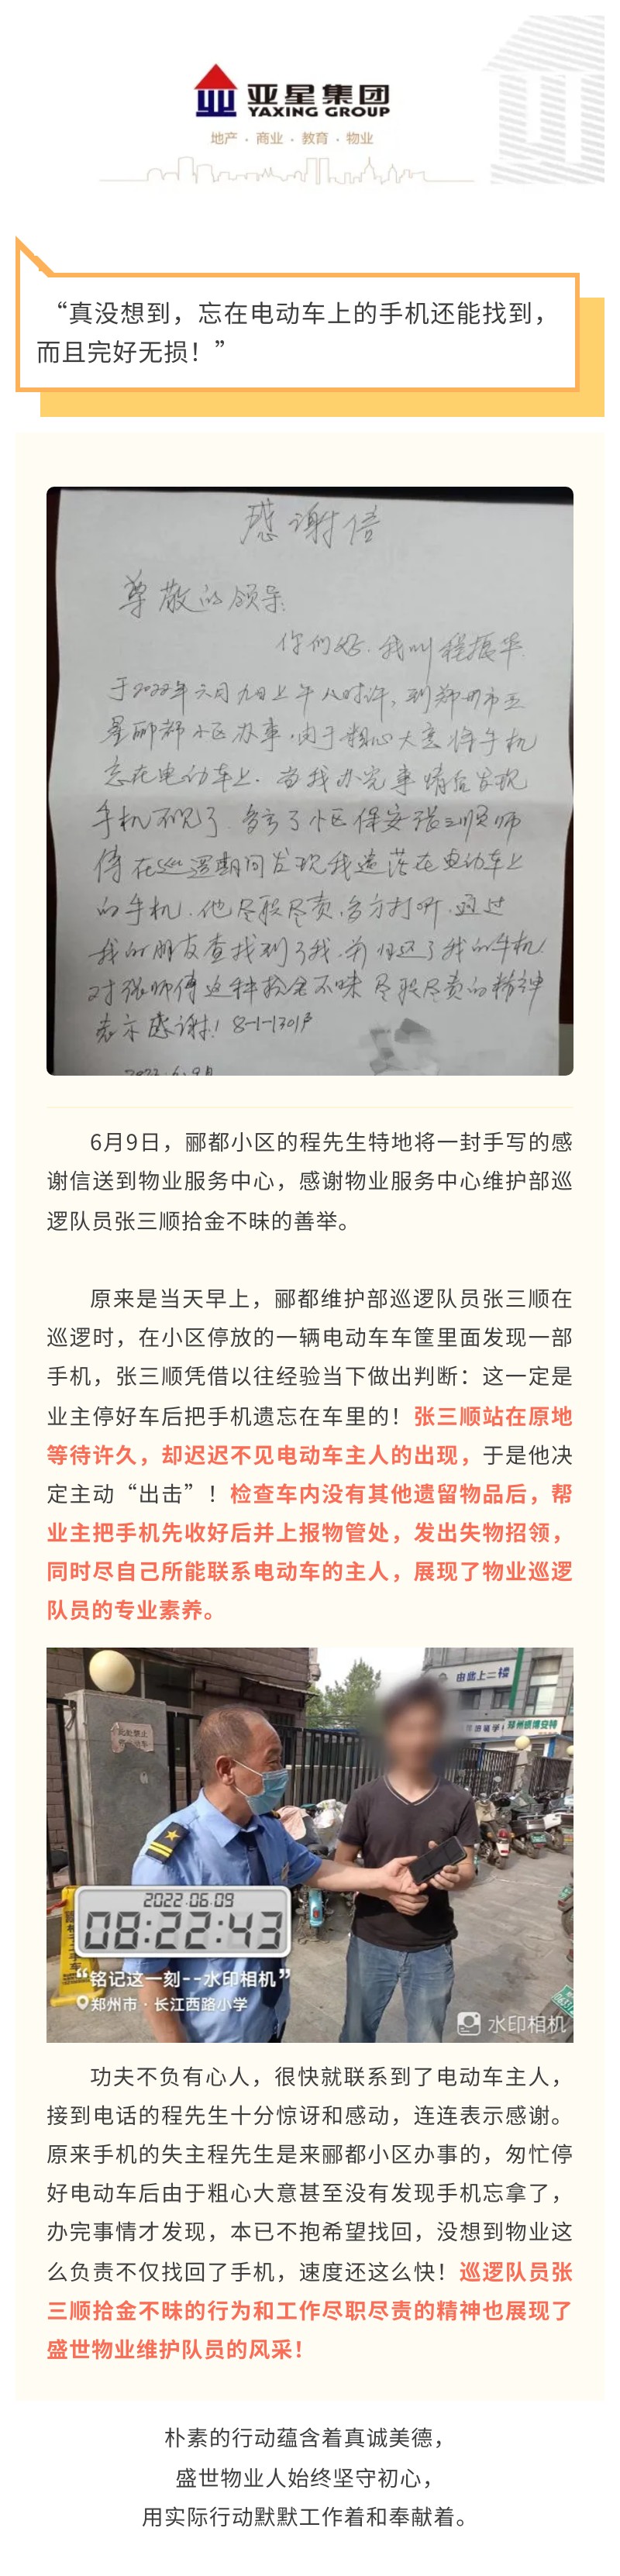 亚星集团
YAXING GROUP
地产 · 商业 · 教育 · 物业
“真没想到，忘在电动车上的手机还能找到，
而且完好无损！”
感谢信
尊敬的领导:
你们好.我叫程振华.
于2022年六月九日上午八时许,到郑州市亚
星郦都小区办事,由于粗心大意将手机
忘在电动车上.当我办完事情后发现
手机不见了.多亏了小区保安张三顺师
傅在巡逻期间发现我遗落在电动车上
的手机.他尽职尽责,多方打听.通过
我的朋友查找到了我.并归还了我的手机.
对张师傅这种拾金不昧尽职尽责的精神
表示感谢! 8-1-1301户
2022.6.9日
6月9日，郦都小区的程先生特地将一封手写的感
谢信送到物业服务中心，感谢物业服务中心维护部巡
逻队员张三顺拾金不昧的善举。
原来是当天早上，郦都维护部巡逻队员张三顺在
巡逻时，在小区停放的一辆电动车车筐里面发现一部
手机，张三顺凭借以往经验当下做出判断：这一定是
业主停好车后把手机遗忘在车里的！张三顺站在原地
等待许久，却迟迟不见电动车主人的出现，于是他决
定主动“出击”！检查车内没有其他遗留物品后，帮
业主把手机先收好后并上报物管处，发出失物招领，
同时尽自己所能联系电动车的主人，展现了物业巡逻
队员的专业素养。
由此上二楼
此处禁止
2022.06.09
08:22:43
“铭记这一刻--水印相机”
郑州市·长江西路小学
水印相机
功夫不负有心人，很快就联系到了电动车主人，
接到电话的程先生十分惊讶和感动，连连表示感谢。
原来手机的失主程先生是来郦都小区办事的，匆忙停
好电动车后由于粗心大意甚至没有发现手机忘拿了，
办完事情才发现，本已不抱希望找回，没想到物业这
么负责不仅找回了手机，速度还这么快！巡逻队员张
三顺拾金不昧的行为和工作尽职尽责的精神也展现了
盛世物业维护队员的风采！
朴素的行动蕴含着真诚美德，
盛世物业人始终坚守初心，
用实际行动默默工作着和奉献着。